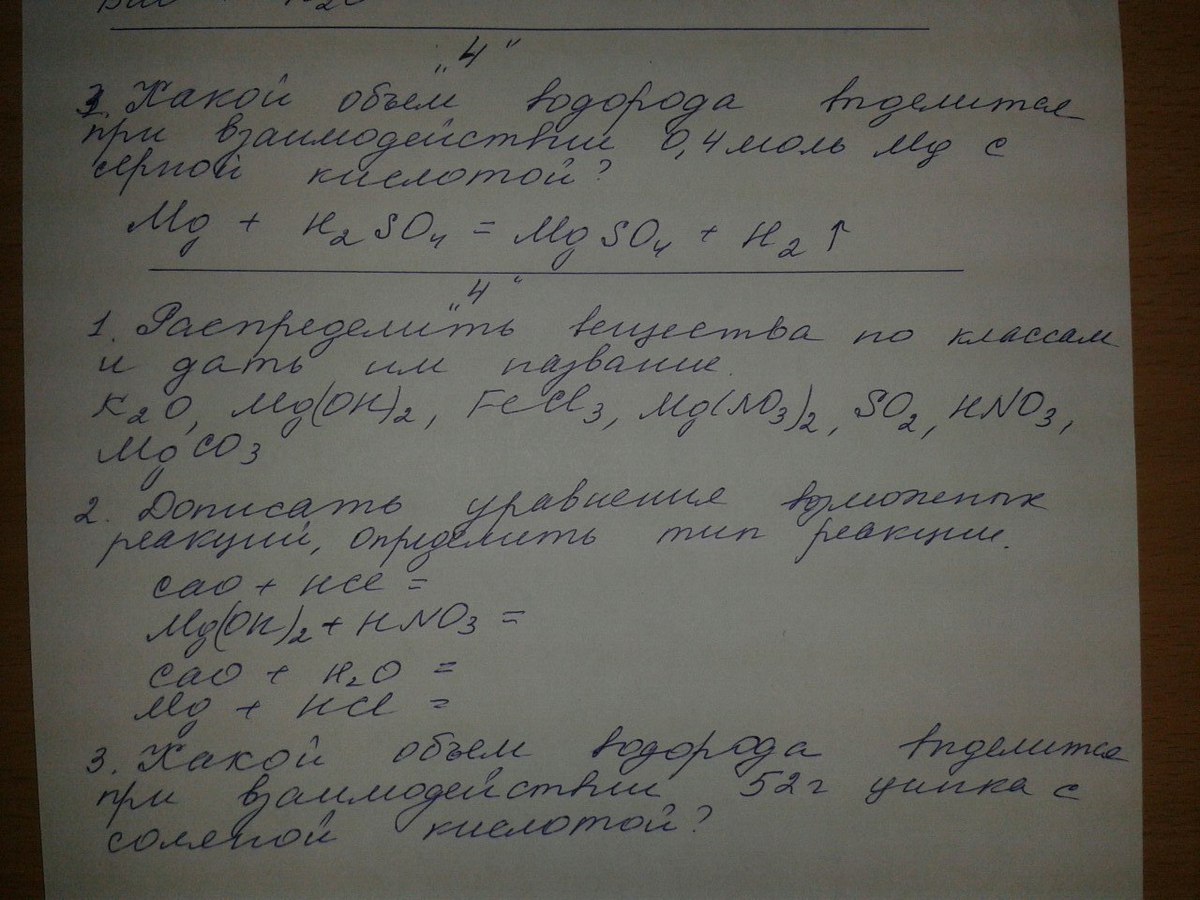 „4“
3. Какой объем водорода выделится
при взаимодействии 0,4 моль Mg с
серной кислотой?
Mg + H₂SO₄ = MgSO₄ + H₂ ↑
„4“
1. Распределить вещества по классам
и дать им название.
K₂O, Mg(OH)₂, FeCl₃, Mg(NO₃)₂, SO₂, HNO₃,
MgCO₃
2. Дописать уравнения возможных
реакций, определить тип реакции.
CaO + HCl =
Mg(OH)₂ + HNO₃ =
CaO + H₂O =
Mg + HCl =
3. Какой объем водорода выделится
при взаимодействии 52 г цинка с
соляной кислотой?